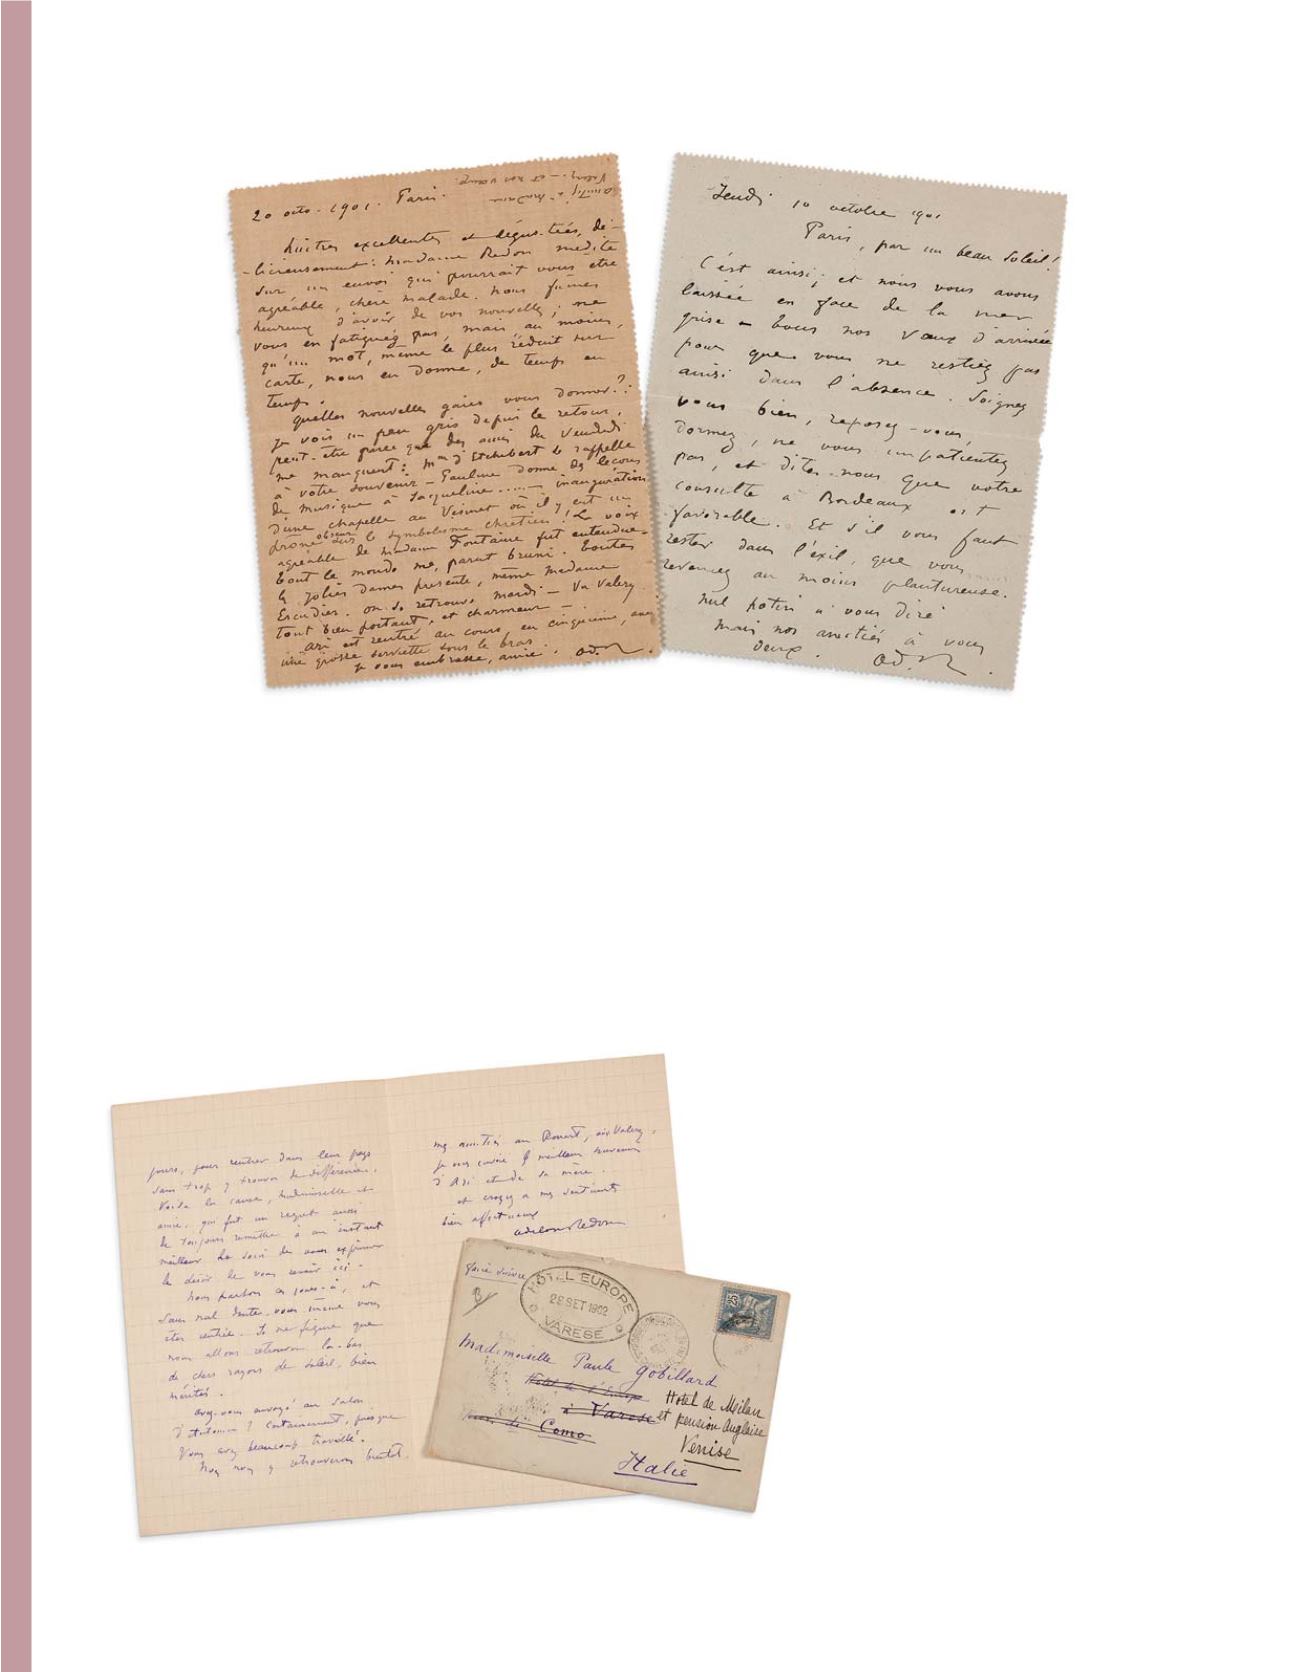 20 octo. 1901. Paris.
Amitiés à Madame
Valery – et bon vœux.
huitres excellentes et dégustées, dé-
-licieusement : Madame Redon médite
sur un envoi qui pourrait vous être
agréable, chère malade. Nous fûmes
heureux d'avoir de vos nouvelles ; ne
vous en fatiguez pas, mais, au moins,
qu'un mot, même le plus réduit sur
carte, nous en donne, de temps en
temps.
quelles nouvelles gaies vous donner ?
je vois un peu gris depuis le retour,
peut-être parce que des amis du Vendredi
me manquent : d'Etchebert se rappelle
à votre souvenir – Pauline donne des leçons
de musique à Jacqueline ..... – inauguration
d'une chapelle au Vésinet où il y eut un
prône obscur sur le symbolisme chrétien ! La voix
agréable de Madame Fontaine fut entendue.
tout le monde me parut bruni. toutes
les jolies dames présente, même Madame
Escudier. on se retrouve mardi – Vu Valery
tout bien portant, et charmeur –
ari est rentré au cours, en cinquième, avec
une grosse serviette sous le bras
je vous embrasse, amie. Od. R.
Jeudi 10 octobre 1901
Paris, par un beau Soleil !
C'est ainsi ; et nous vous avons
laissée en face de la mer
grise – tous nos vœux d'arrivée
pour que vous ne restiez pas
ainsi dans l'absence. Soignez
vous bien, reposez-vous,
dormez, ne vous impatientez
pas, et dites-nous que votre
consulte à Bordeaux est
favorable. Et s'il vous faut
rester dans l'exil, que vous
reveniez au moins plantureuse.
Nul potin à vous dire
Mais nos amitiés à vous
deux. Od. R.
jours, pour rentrer dans leur pays
sans trop y trouver de différence.
Voilà la cause, Mademoiselle et
amie, qui fut un regret aussi
de toujours remettre à un instant
meilleur le soin de vous exprimer
le désir de vous revoir ici –
Nous partons ces jours-ci, et
sans nul doute, vous même vous
êtes rentrée. Je me figure que
nous allons retrouver là-bas
de chers rayons de soleil, bien
mérités.
avez-vous envoyé au Salon
d'automne ? Certainement, puisque
vous avez beaucoup travaillé.
Nous nous y retrouverons bientôt.
mes amitiés au Rouart, aux Valery,
je vous envoie le meilleur souvenir
d'Ari et de sa mère.
et croyez à mes sentiments
bien affectueux
odilon Redon
faire suivre
HÔTEL EUROPE
28 SET 1902
VARESE
25
Mademoiselle Paule Gobillard
Hotel de l'Europe
à Varese
Como
Hotel de Milan
et pension Anglaise
Venise
Italie